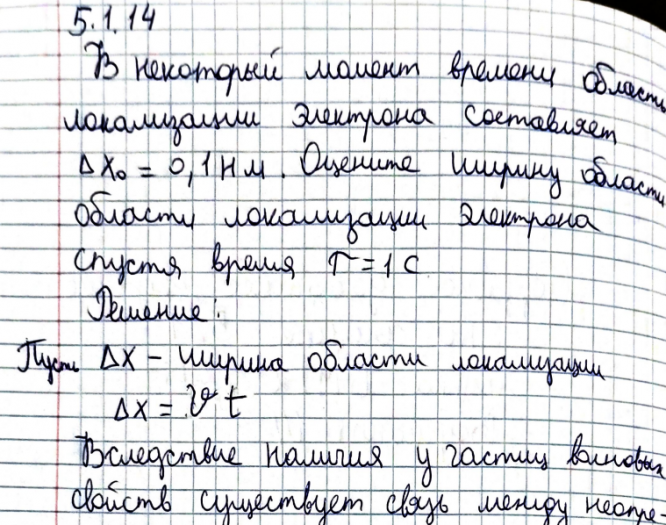 5.1.14
В некоторый момент времени область
локализации электрона составляет
Δx₀ = 0,1 нм. Оцените ширину области
области локализации электрона
спустя время τ = 1 с
Решение:
Пусть Δx – ширина области локализации
Δx = υ t
Вследствие наличия у частиц волновых
свойств существует связь между неопре-